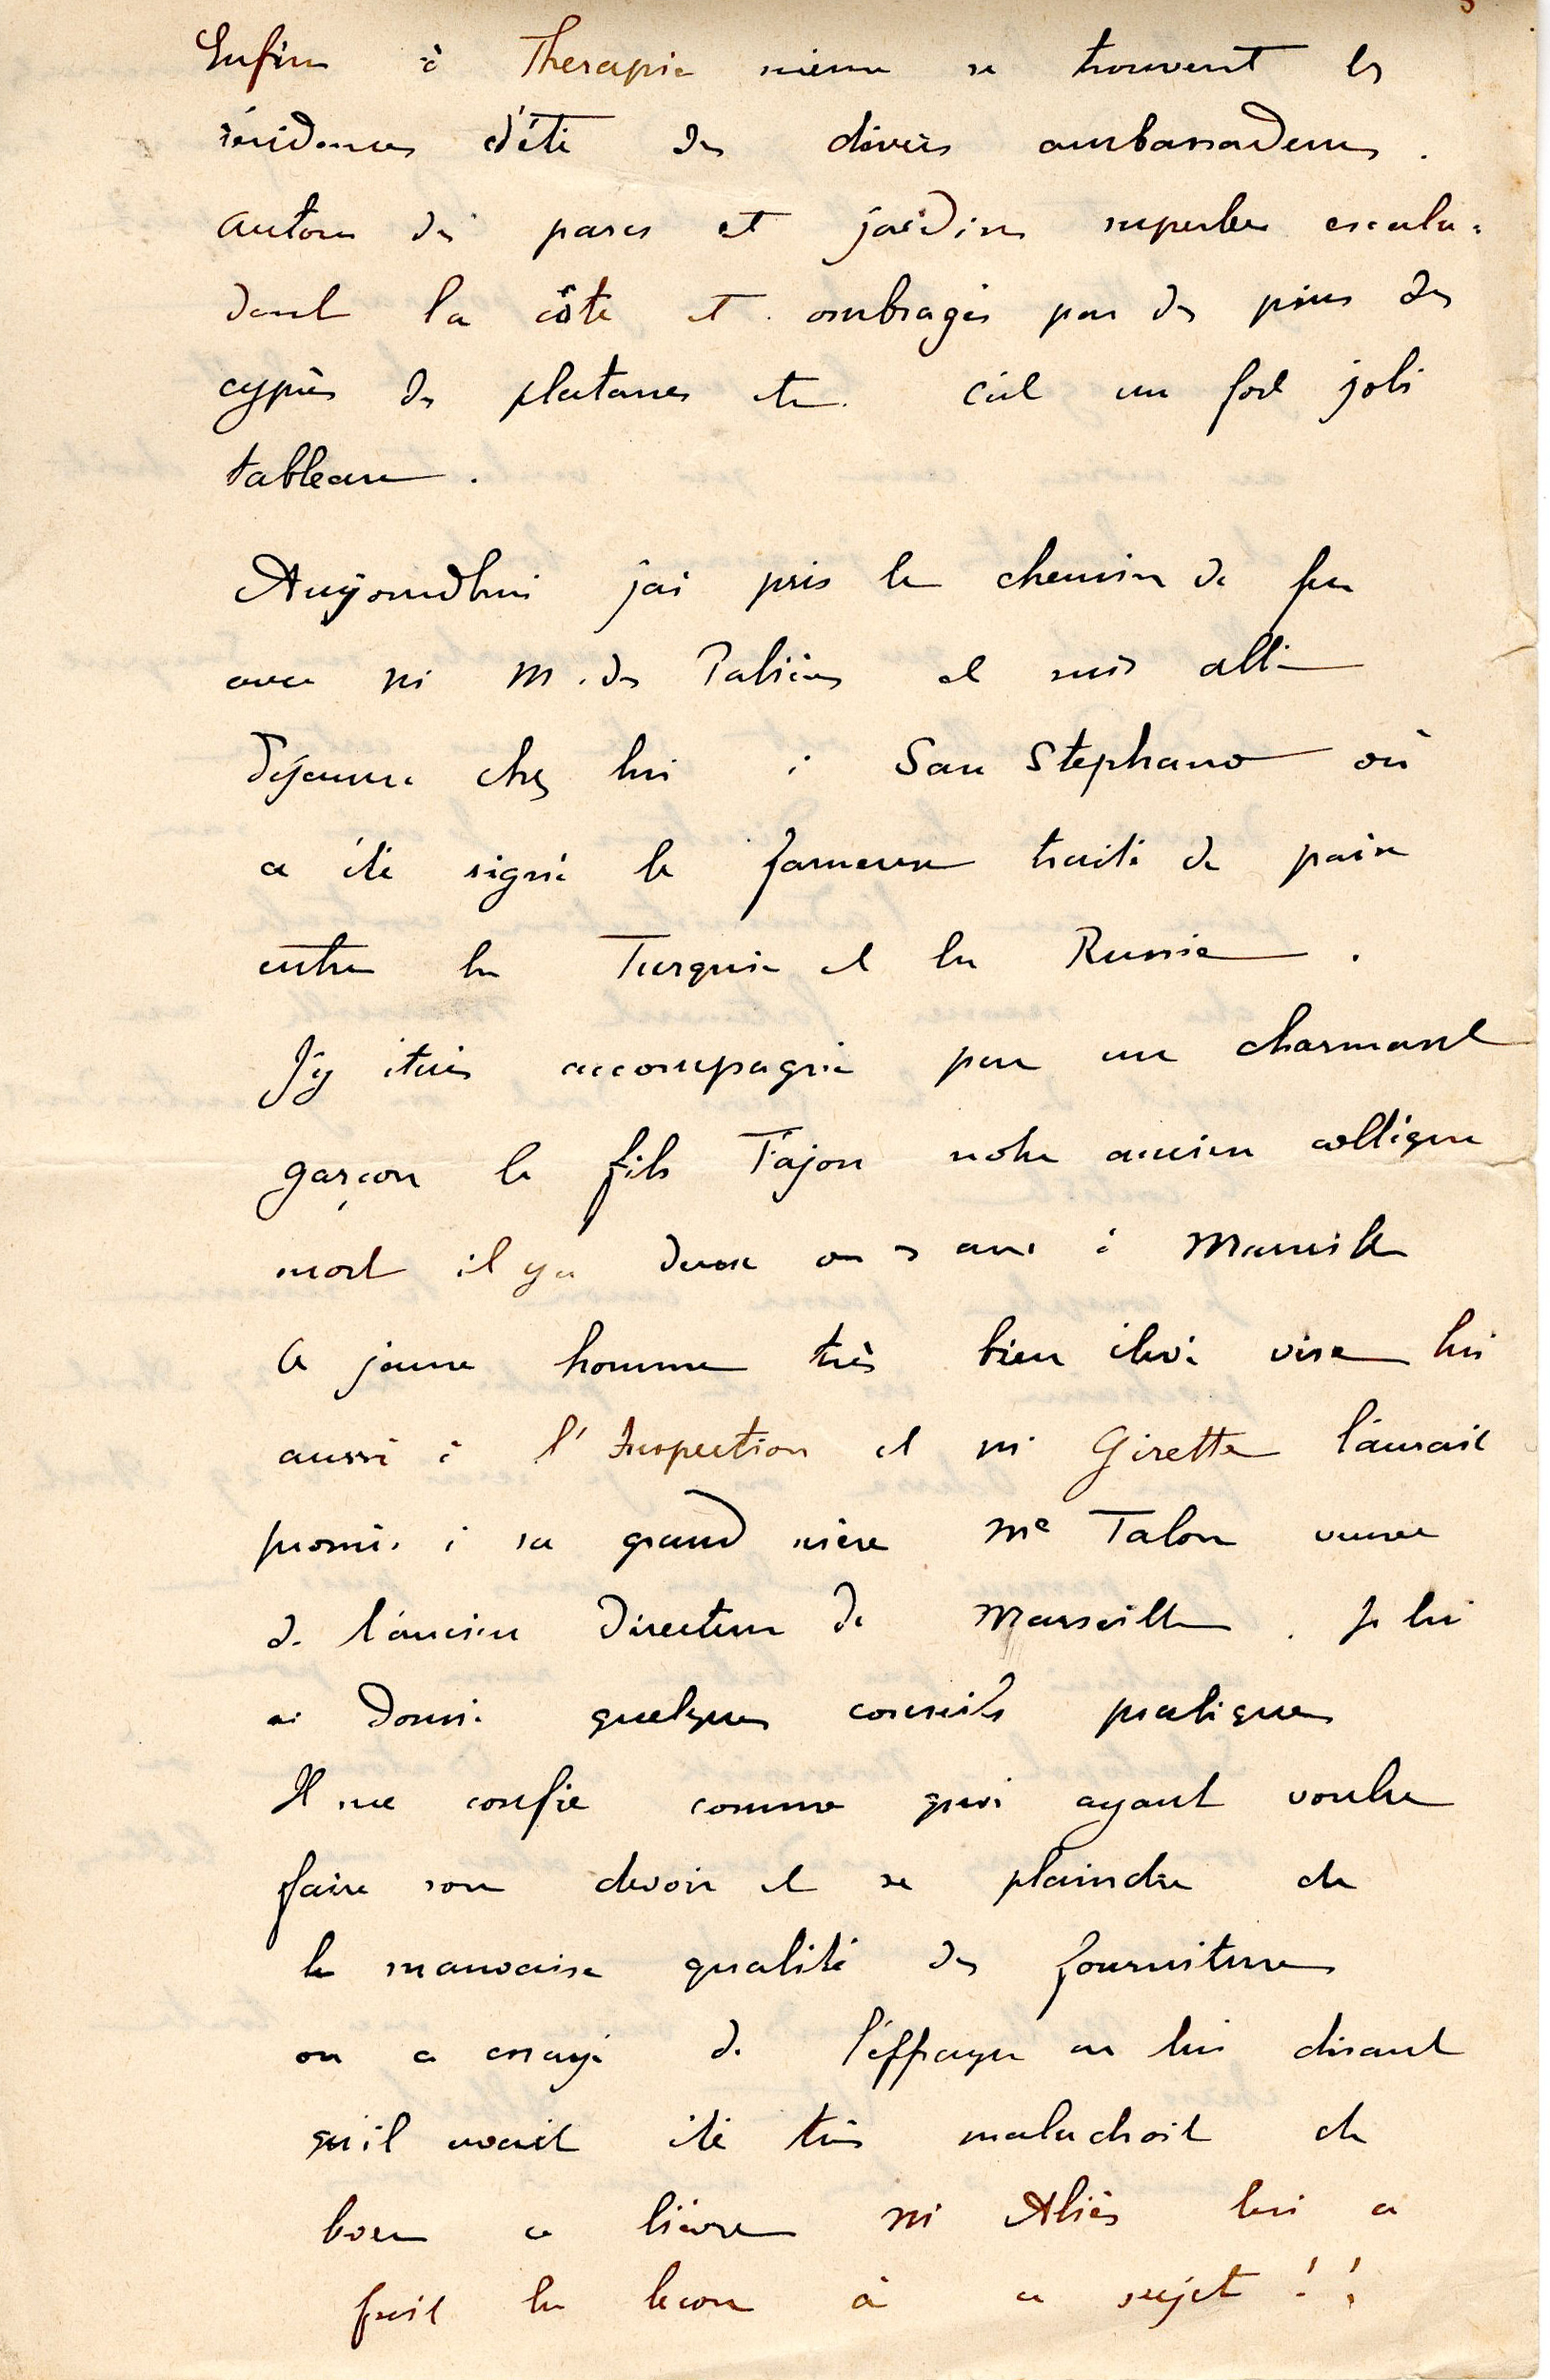 Enfin à Therapia même se trouvent les
résidences d'été des divers ambassadeurs.
Autour des parcs et jardins superbes escala-
dant la côte et ombragés par des pins des
cyprès des platanes etc. C'est un fort joli
tableau.
Aujourd'hui j'ai pris le chemin de fer
avec M. des Palières et suis allé
déjeuner chez lui à San Stephano où
a été signé le fameux traité de paix
entre la Turquie et la Russie.
J'y étais accompagné par un charmant
garçon le fils Tajon notre ancien collègue
mort il y a deux ou 3 ans à Marseille
Ce jeune homme très bien élevé vise lui
aussi à l'Inspection et Mr Girette l'aurait
promis à sa grand mère Me Talon veuve
de l'ancien Directeur de Marseille. Je lui
ai donné quelques conseils pratiques
Il me confie comme quoi ayant voulu
faire son devoir et se plaindre de
la mauvaise qualité des fournitures
on a essayé de l'effrayer en lui disant
qu'il avait été très maladroit de
lever ce lièvre Mr Aliès lui a
fait la leçon à ce sujet !!